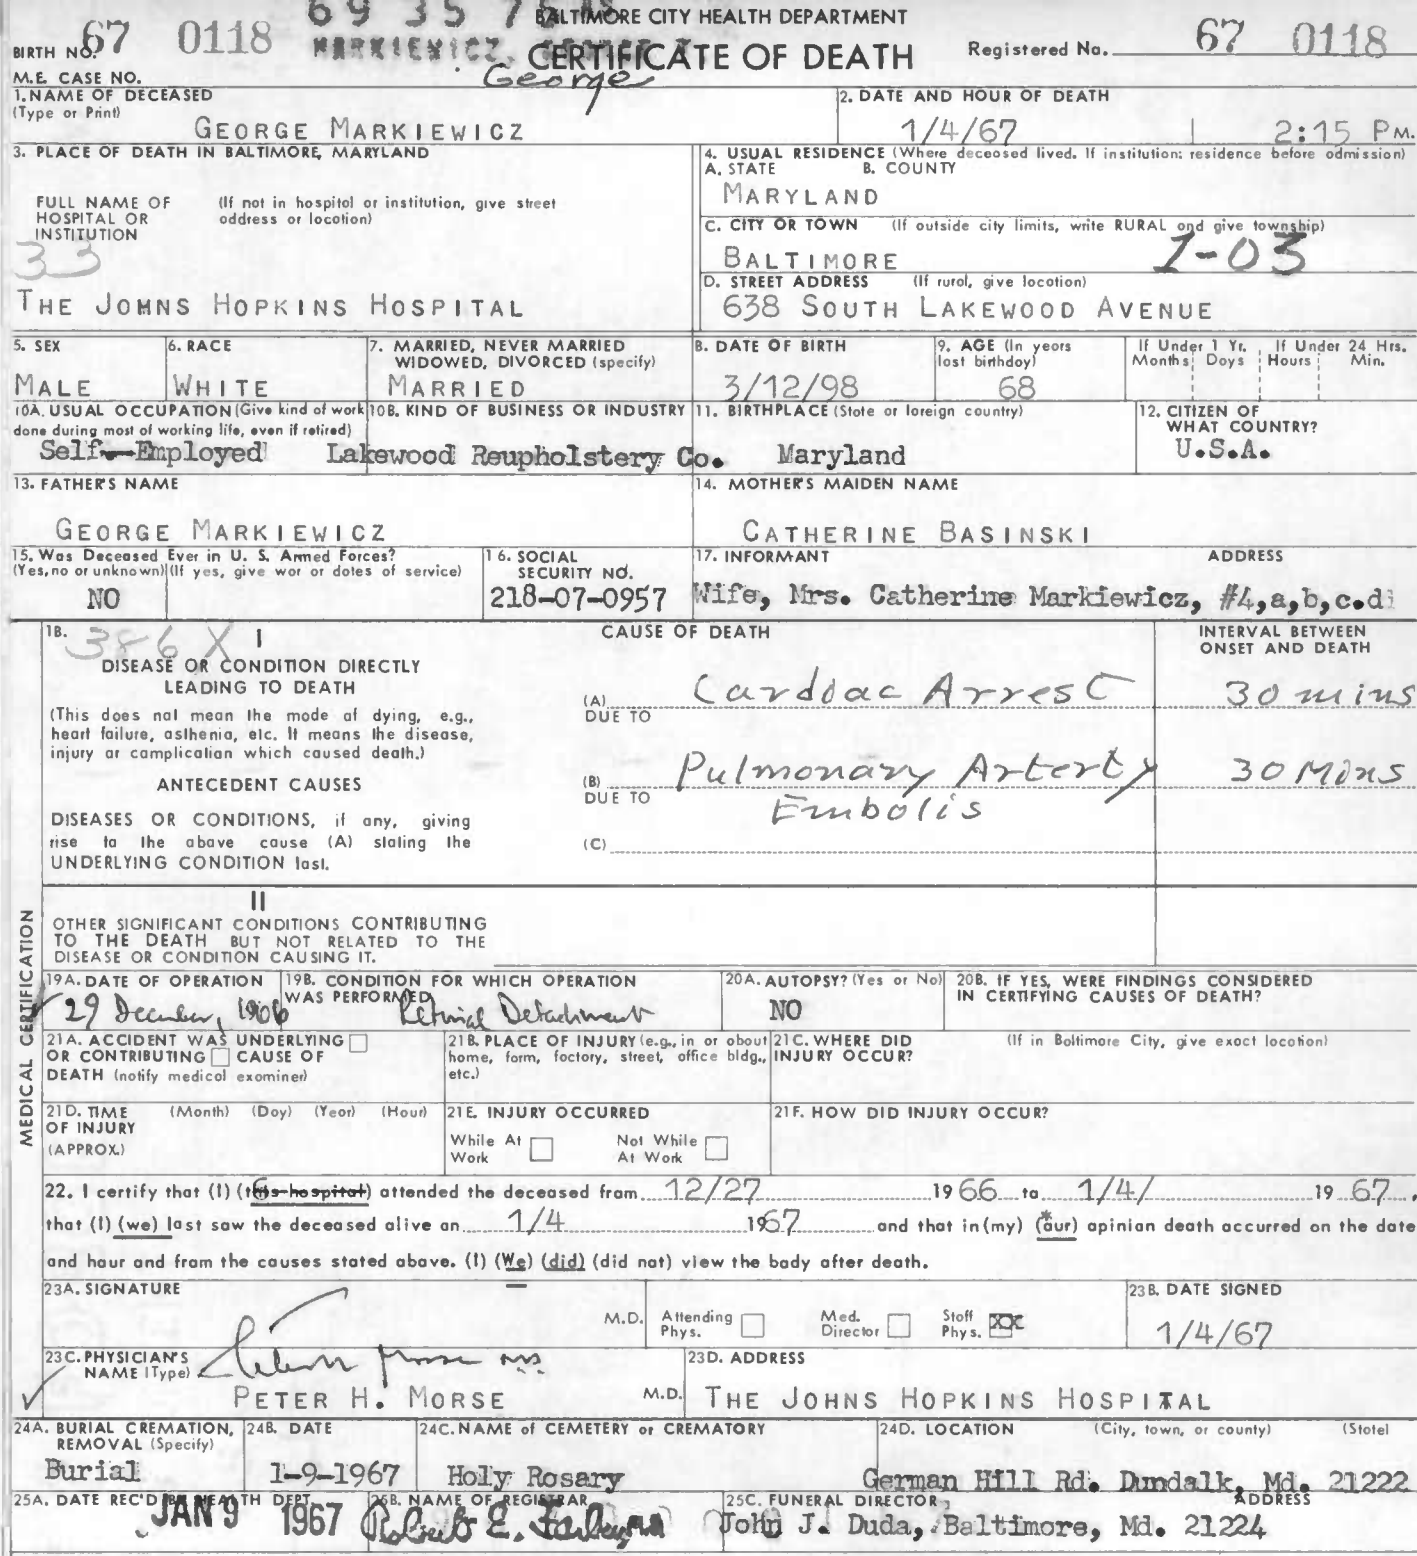 69 35 76
BALTIMORE CITY HEALTH DEPARTMENT
BIRTH NO. 67 0118
MARKIEWICZ, GEORGE
CERTIFICATE OF DEATH
Registered No. 67 0118
M.E. CASE NO.
George
1. NAME OF DECEASED
(Type or Print)
GEORGE MARKIEWICZ
2. DATE AND HOUR OF DEATH
1/4/67 2:15 PM.
3. PLACE OF DEATH IN BALTIMORE, MARYLAND
FULL NAME OF HOSPITAL OR INSTITUTION
(If not in hospital or institution, give street address or location)
33
THE JOHNS HOPKINS HOSPITAL
4. USUAL RESIDENCE (Where deceased lived. If institution: residence before admission)
A. STATE B. COUNTY
MARYLAND
C. CITY OR TOWN (If outside city limits, write RURAL and give township)
BALTIMORE 1-03
D. STREET ADDRESS (If rural, give location)
638 SOUTH LAKEWOOD AVENUE
5. SEX
MALE
6. RACE
WHITE
7. MARRIED, NEVER MARRIED WIDOWED, DIVORCED (specify)
MARRIED
8. DATE OF BIRTH
3/12/98
9. AGE (In years last birthday)
68
If Under 1 Yr. Months Days
If Under 24 Hrs. Hours Min.
10A. USUAL OCCUPATION (Give kind of work done during most of working life, even if retired)
Self-Employed
10B. KIND OF BUSINESS OR INDUSTRY
Lakewood Reupholstery Co.
11. BIRTHPLACE (State or foreign country)
Maryland
12. CITIZEN OF WHAT COUNTRY?
U.S.A.
13. FATHER'S NAME
GEORGE MARKIEWICZ
14. MOTHER'S MAIDEN NAME
CATHERINE BASINSKI
15. Was Deceased Ever in U. S. Armed Forces?
(Yes, no or unknown) (If yes, give war or dates of service)
NO
16. SOCIAL SECURITY NO.
218-07-0957
17. INFORMANT ADDRESS
Wife, Mrs. Catherine Markiewicz, #4,a,b,c.d
MEDICAL CERTIFICATION
18. 386 X I
CAUSE OF DEATH
INTERVAL BETWEEN ONSET AND DEATH
DISEASE OR CONDITION DIRECTLY LEADING TO DEATH
(This does not mean the mode of dying, e.g., heart failure, asthenia, etc. It means the disease, injury or complication which caused death.)
(A) Cardiac Arrest 30 mins
DUE TO
ANTECEDENT CAUSES
(B) Pulmonary Arterty 30 Mins
DUE TO Embolis
DISEASES OR CONDITIONS, if any, giving rise to the above cause (A) stating the UNDERLYING CONDITION last.
(C)
II
OTHER SIGNIFICANT CONDITIONS CONTRIBUTING TO THE DEATH BUT NOT RELATED TO THE DISEASE OR CONDITION CAUSING IT.
19A. DATE OF OPERATION
29 December, 1966
19B. CONDITION FOR WHICH OPERATION WAS PERFORMED
Retinal Detachment
20A. AUTOPSY? (Yes or No)
NO
20B. IF YES, WERE FINDINGS CONSIDERED IN CERTIFYING CAUSES OF DEATH?
21A. ACCIDENT WAS UNDERLYING OR CONTRIBUTING CAUSE OF DEATH (notify medical examiner)
21B. PLACE OF INJURY (e.g., in or about home, farm, factory, street, office bldg., etc.)
21C. WHERE DID INJURY OCCUR?
(If in Baltimore City, give exact location)
21D. TIME OF INJURY (APPROX.) (Month) (Day) (Year) (Hour)
21E. INJURY OCCURRED
While At Work Not While At Work
21F. HOW DID INJURY OCCUR?
22. I certify that (I) (this hospital) attended the deceased from 12/27 1966 to 1/4/ 1967,
that (I) (we) last saw the deceased alive on 1/4 1967 and that in (my) (*our) opinian death occurred on the date
and hour and from the causes stated above. (I) (We) (did) (did not) view the body after death.
23A. SIGNATURE
M.D.
Attending Phys. Med. Director Staff Phys. XX
23B. DATE SIGNED
1/4/67
23C. PHYSICIAN'S NAME (Type)
PETER H. MORSE M.D.
23D. ADDRESS
THE JOHNS HOPKINS HOSPITAL
24A. BURIAL CREMATION, REMOVAL (Specify)
Burial
24B. DATE
1-9-1967
24C. NAME of CEMETERY or CREMATORY
Holy Rosary
24D. LOCATION (City, town, or county) (State)
German Hill Rd. Dundalk, Md. 21222
25A. DATE REC'D BY HEALTH DEPT.
JAN 9 1967
25B. NAME OF REGISTRAR
Robert E. Farber
25C. FUNERAL DIRECTOR ADDRESS
John J. Duda, Baltimore, Md. 21224